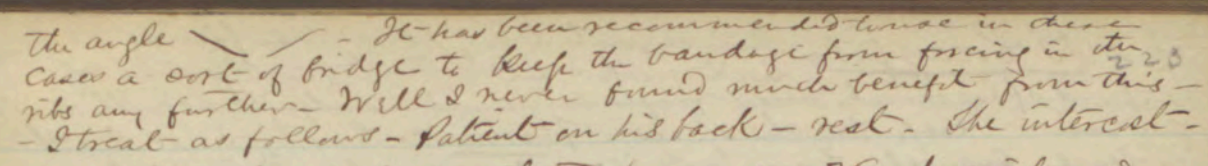 The angle \ / - It has been recommended to use in these
cases a sort of bridge to keep the bandage from forcing in the
223
ribs any further - Well I never found much benefit from this -
- I treat as follows - Patient on his back - rest. The intercost-